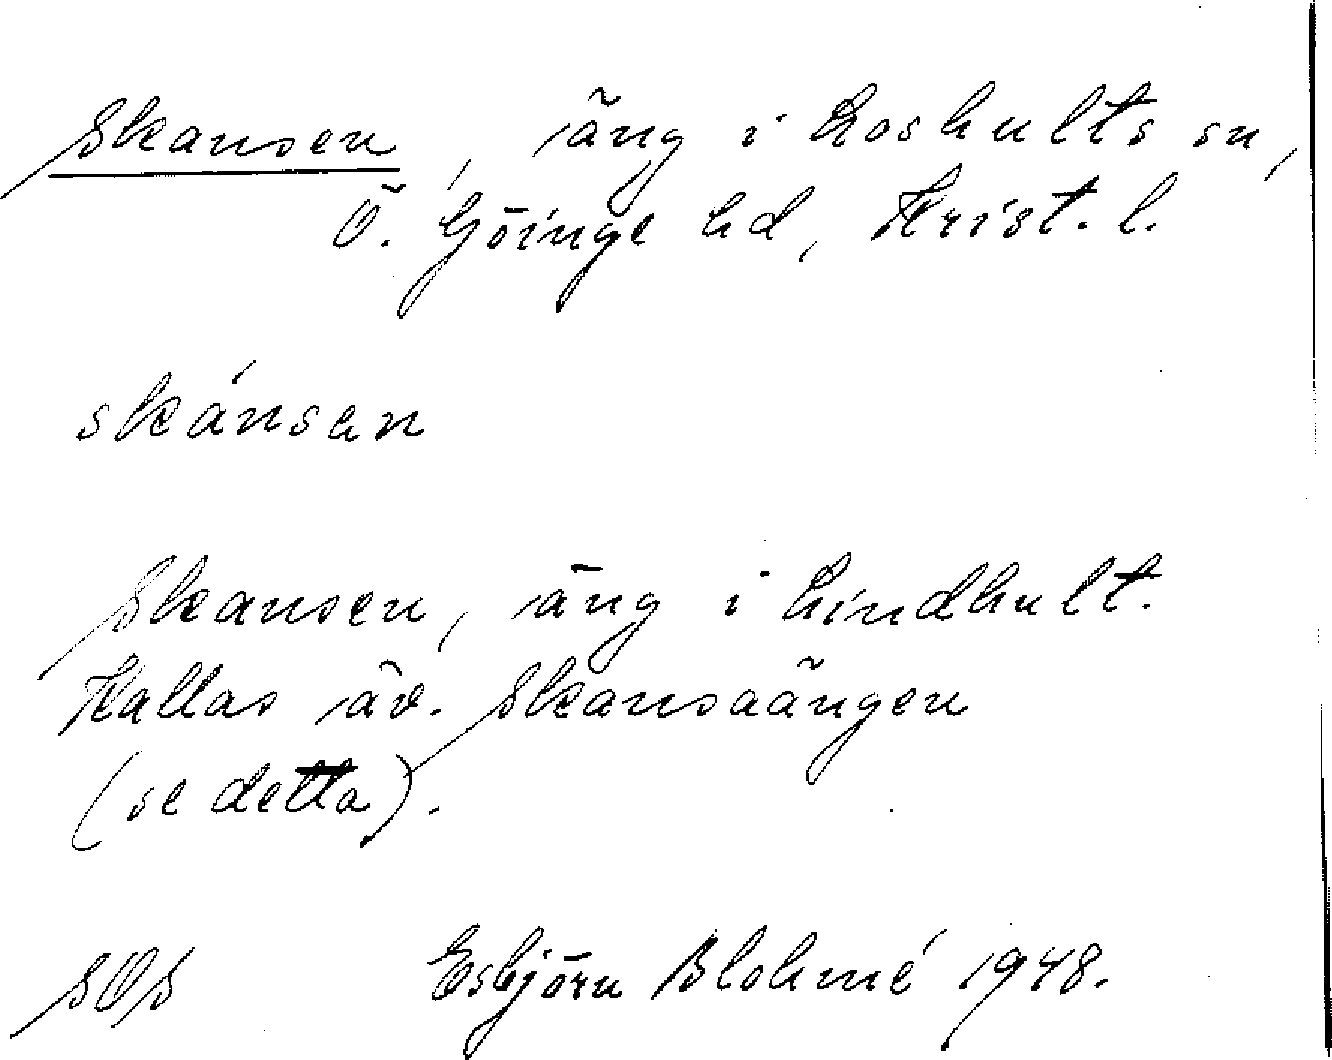 Skansen, äng i Loshults sn,
Ö. Göinge hd, Krist. l.
skánsan
Skansen, äng i Lindhult.
Kallas äv. Skansaängen
(se detta).
SOS Esbjörn Blohmé 1948.